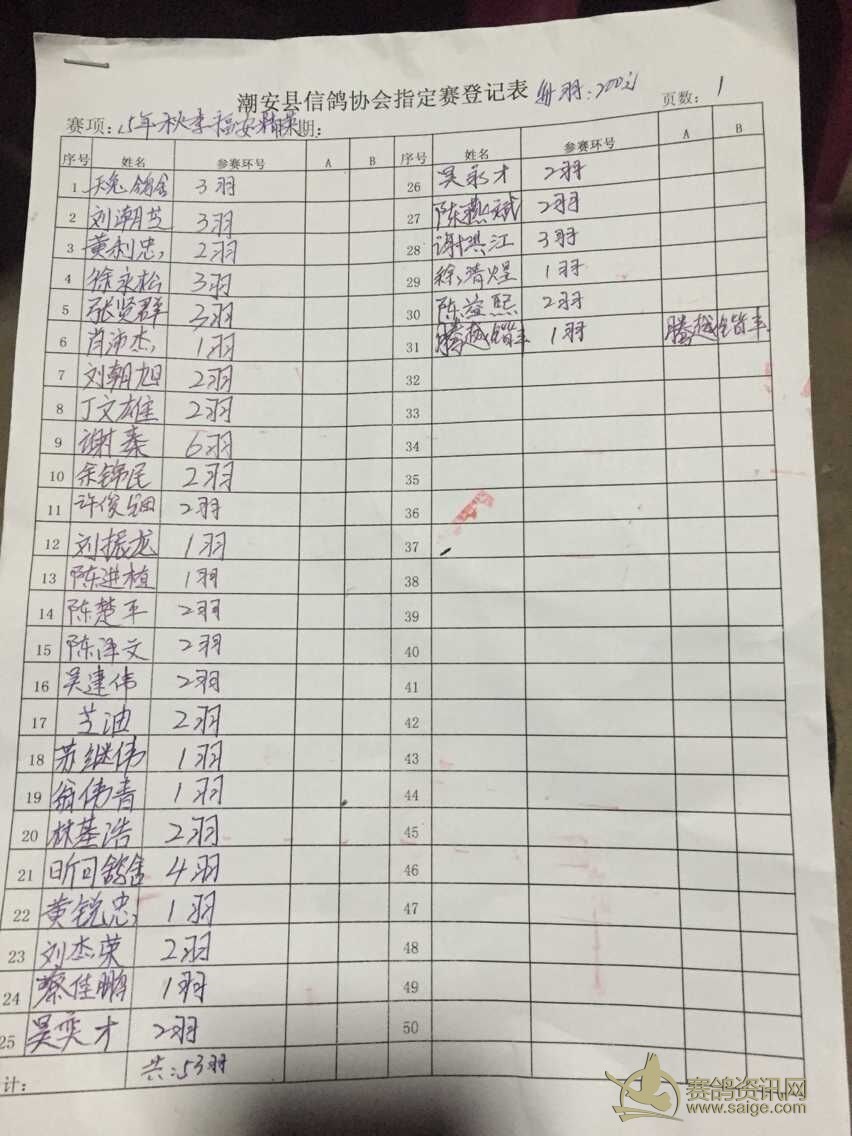 潮安县信鸽协会指定赛登记表 每羽:200元
赛项: 15年秋季福安精英 期: 页数: 1
序号 姓名 参赛环号 A B 序号 姓名 参赛环号 A B
1 天兔鸽舍 3羽 26 吴永才 2羽
2 刘潮芝 3羽 27 陈燕斌 2羽
3 黄利忠 2羽 28 谢洪江 3羽
4 徐永松 3羽 29 徐清煌 1羽
5 张贤群 3羽 30 陈益熙 2羽
6 肖沛杰 1羽 31 腾越 1羽 腾越
7 刘朝旭 2羽 32
8 丁文雄 2羽 33
9 谢秦 6羽 34
10 余锦民 2羽 35
11 许俊 2羽 36
12 刘振龙 1羽 37
13 陈进植 1羽 38
14 陈楚平 2羽 39
15 陈泽文 2羽 40
16 吴建伟 2羽 41
17 芝迪 2羽 42
18 苏继伟 1羽 43
19 翁伟青 1羽 44
20 林基浩 2羽 45
21 昕回鸽舍 4羽 46
22 黄锐忠 1羽 47
23 刘杰荣 2羽 48
24 蔡佳鹏 1羽 49
25 吴奕才 2羽 50
计: 共:53羽
赛鸽资讯网
www.saige.com